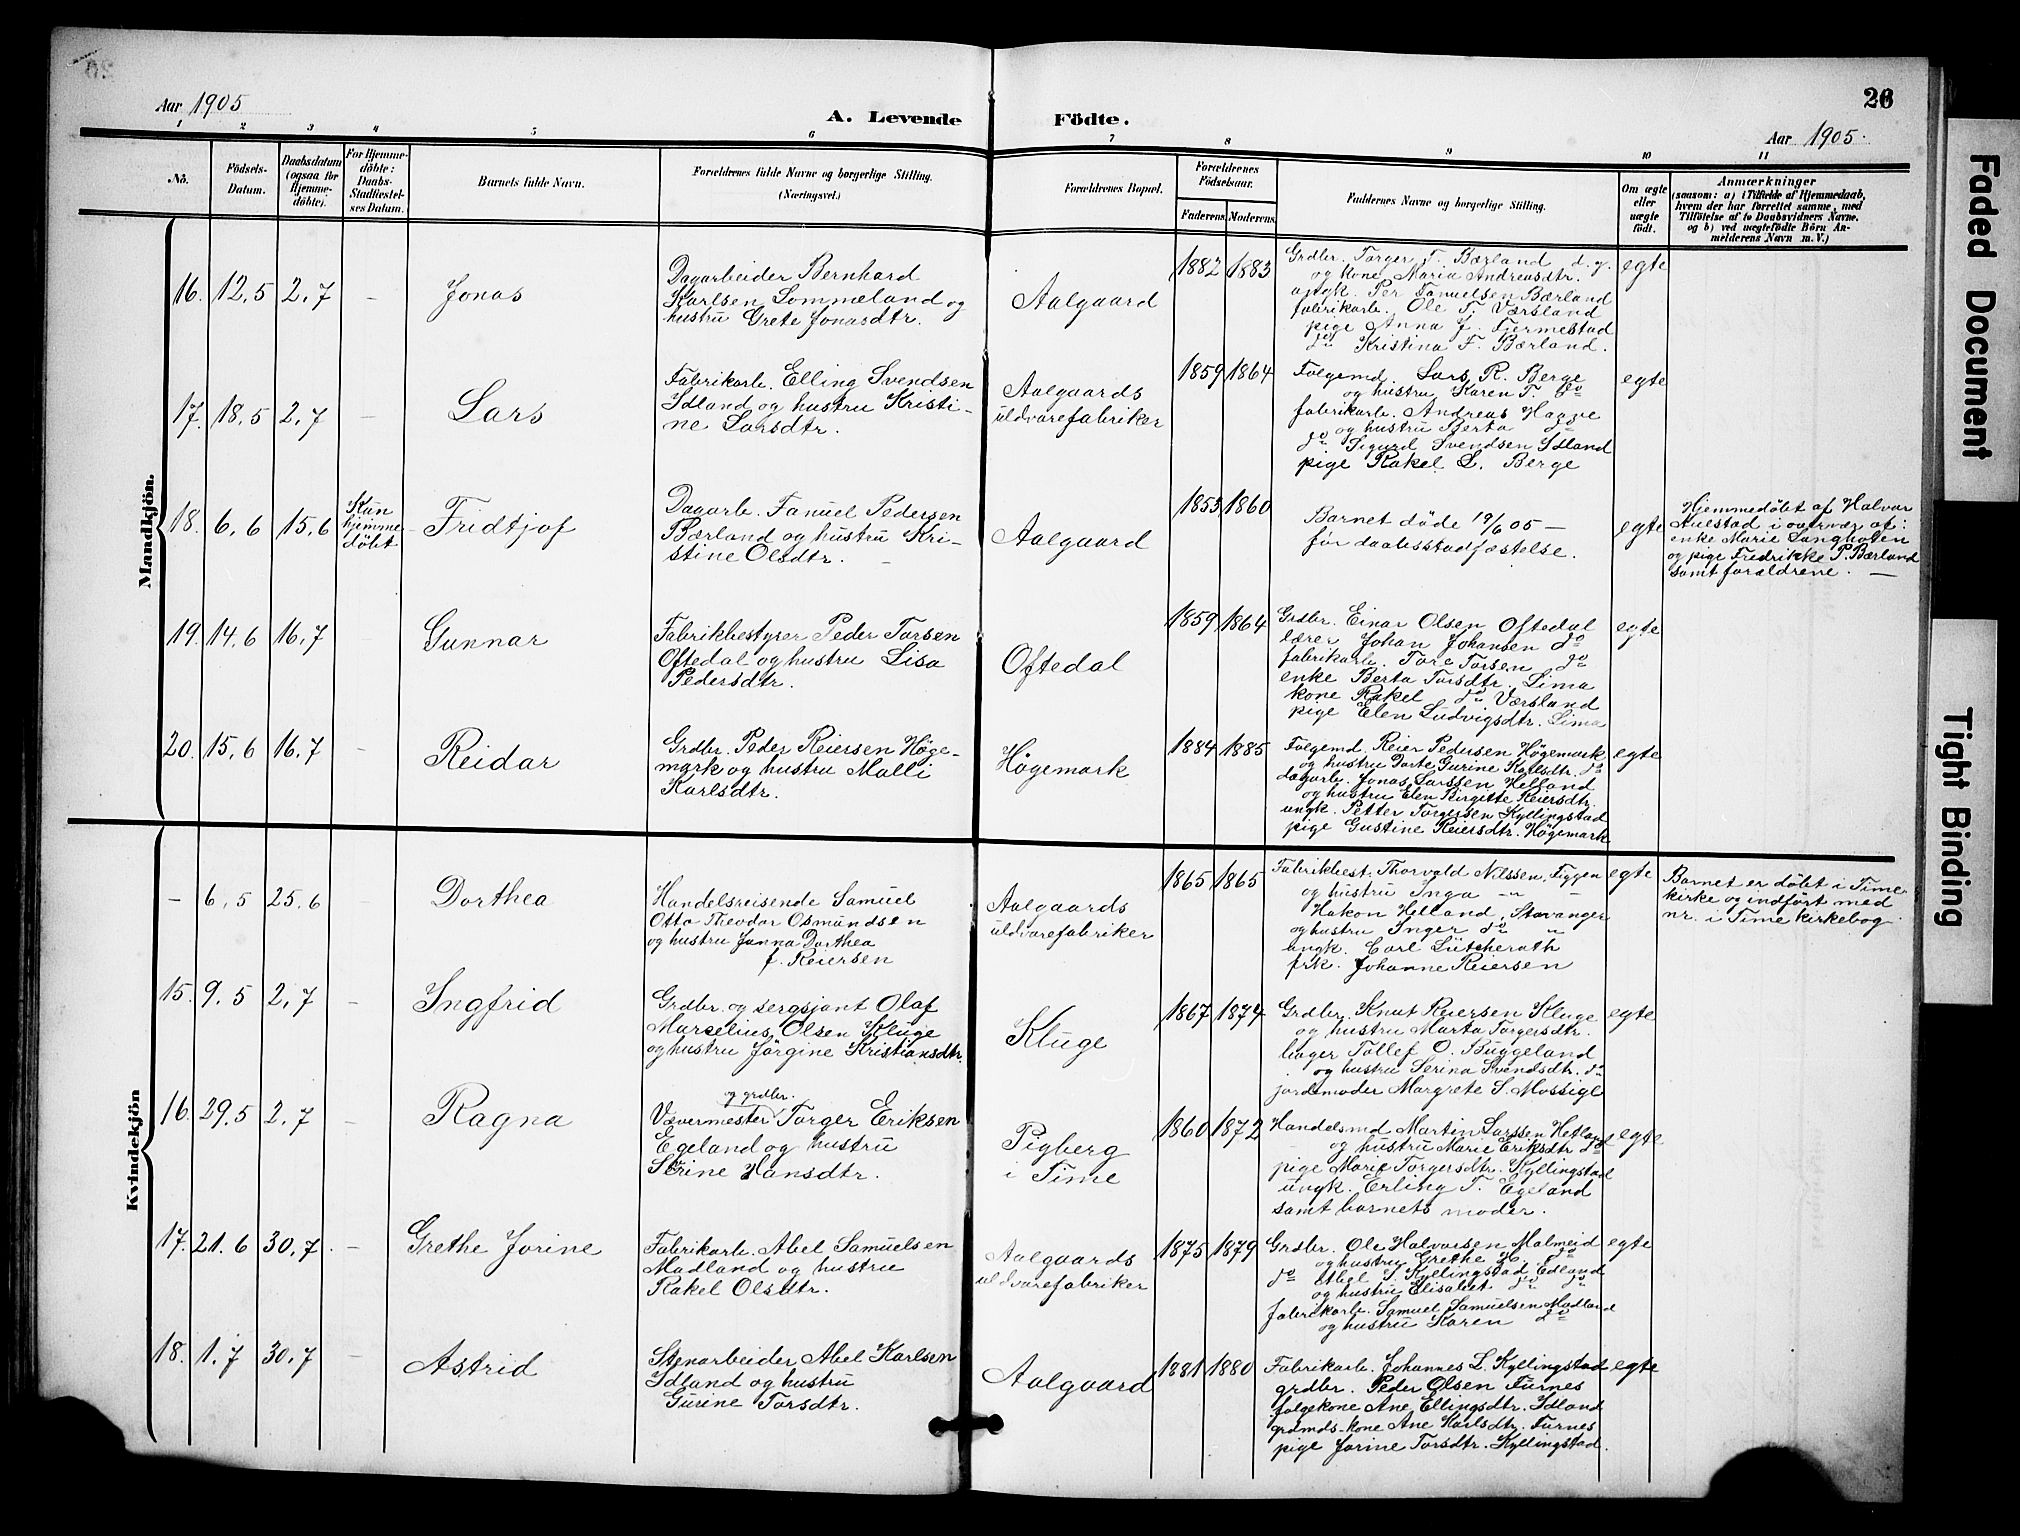 Aar 1905
A. Levende
Födte.
26
Aar 1905.
1 2 3 4 5 6 7 8 9 10 11
No.
Födsels-
Datum.
Daabsdatum
(ogsaa for
Hjemme-
döbte).
For Hjemme-
döbte:
Daabs-
Stadfæstel-
ses Datum.
Barnets fulde Navn.
Forældrenes fulde Navne og borgerlige Stilling.
(Næringsvei.)
Forældrenes Bopæl.
Forældrenes
Födselsaar.
Faderens. Moderens.
Faddernes Navne og borgerlige Stilling.
Om ægte
eller
uægte
födt.
Anmærkninger
(saasom: a) i Tilfælde af Hjemmedaab,
hvem der har forrettet samme, med
Tilföielse af to Daabsvidners Navne.
og b) ved uægtefödte Börn An-
melderens Navn m. V.)
Mandkjön.
16. 12,5 2,7 - Jonas
Dagarbeider Bernhard
Karlsen Sommeland og
hustru Grete Jonasdtr.
Aalgaard
1882 1883
Grdbr. Torger T. Bærland d.y.
og kone Maria Andreasdtr.
ungk. Per Fanuelsen Bærland
fabrikarb. Ole T. Værsland
pige Anna J. Fjermestad
do Kristina F. Bærland.
egte
17. 18,5 2,7 - Lars
Fabrikarb. Elling Svendsen
Idland og hustru Kristi-
ne Larsdtr.
Aalgaards
uldvarefabriker
1859 1864
Folgemd. Lars R. Berge
og hustru Karen T. do
fabrikarb. Andreas Haave
og hustru Berta do
do Sigurd Svendsen Idland
pige Rakel L. Berge
egte
18. 6,6 15,6
Kun
hjemme-
döbt
Fridtjof
Dagarb. Fanuel Pedersen
Bærland og hustru Kri-
stine Olsdtr. -
Aalgaard
1853 1860
Barnet döde 19/6 05 -
för daabsstadfæstelse.
egte
Hjemmedöbt af Halvar
Aulestad i overvær af:
enke Marie Langholen
og pige Fredrikke P. Bærland
samt forældrene. -
19. 14,6 16,7 Gunnar
Fabrikbestyrer Peder Torsen
Oftedal og hustru Lisa
Pedersdtr.
Oftedal
1859 1864
Grdbr. Einar Olsen Oftedal
lærer Johan Johansen do
fabrikarb. Tore Torsen do
enke Berta Torsdtr. Lima
kone Rakel do Værsland
pige Elen Ludvigsdtr. Lima
egte
20. 15,6 16,7 - Reidar
Grdbr. Peder Reiersen Höge-
mark og hustru Malli
Karlsdtr.
Högemark
1884 1885
Folgemd. Reier Pedersen Högemark
og hustru Dorte Gurine Karlsdtr. do
dagarb. Jonas Larssen Helland
og hustru Elen Birgitte Reiersdtr.
ungk. Petter Torgersen Kyllingstad
pige Gustine Reiersdtr. Högemark
egte
Kvindekjön
- 6,5 25,6 Dorthea
Handelsreisende Samuel
Otto Theodor Osmundsen
og hustru Janna Dorthea
f. Reiersen
Aalgaards
uldvarefabriker
1865 1865
Fabrikbest. Thorvald Nilssen, Figgen
og hustru Inga - " - "
Hakon Helland, Stavanger
og hustru Inger do "
ungk. Carl Lütcherath
frk. Johanne Reiersen
egte
Barnet er döbt i Time
kirke og indfört med
nr. i Time kirkebog.
15. 9,5 2,7 - Ingfrid
Grdbr. og sergsjant Olaf
Marselius Olsen Kluge
og hustru Jörgine Kristiansdtr.
Kluge
1867 1874
Grdbr. Knut Reiersen Kluge
og hustru Marta Torgersdtr.
bager Tollef O. Buggeland
og hustru Serina Svendsdtr. do
jordemoder Margrete S. Mossige
egte
16. 29,5 2,7 - Ragna
og grdbr.
Vævermester Torger Eriksen
Egeland og hustru
Serine Hansdtr.
Pigberg
i Time
1860 1872
Handelsmd Martin Larssen Hetland
og hustru Marie Eriksdtr do
pige Marie Torgersdtr. Kyllingstad
ungk. Erling T. Egeland
samt barnets moder.
egte
17. 21.6 30,7. - Grethe Jorine
Fabrikarb. Abel Samuelsen
Madland og hustru
Rakel Olsdtr.
Aalgaards
uldvarefabriker
1875 1879
Grdbr. Ole Halvorsen Malmeid
og hustru Grethe H. do
do Abel S. Kyllingstad Edland
og hustru Elisabet do do
fabrikarb. Samuel Samuelsen Madland
og hustru Karen do
egte
18. 1.7 30,7 - Astrid
Stenarbeider Abel Karlsen
Idland og hustru
Gurene Torsdtr.
Aalgaard
1881 1880
Fabrikarb. Johannes L. Kyllingstad
grdbr. Peder Olsen Furnes
folgekone Ane Ellingsdtr. Idland
grdmds-kone Ane Karlsdtr. Furnes
pige Jorine Torsdtr. Kyllingstad.
egte
Faded Document
Tight Binding